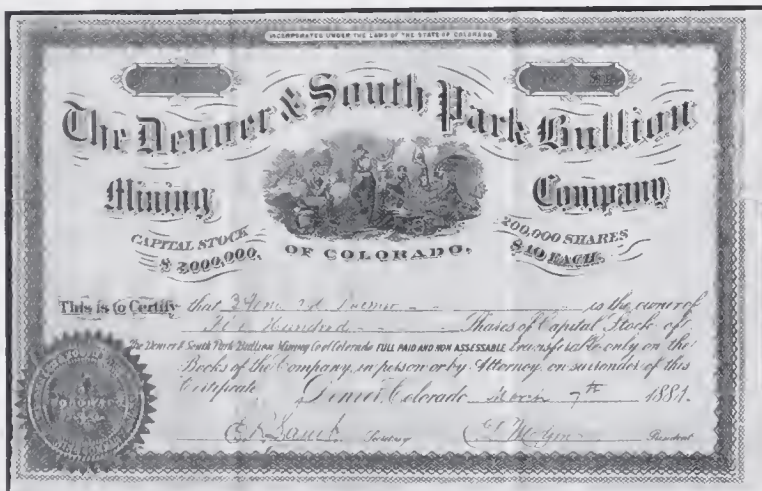 INCORPORATED UNDER THE LAWS OF THE STATE OF COLORADO
The Denver & South Park Bullion
Mining Company
CAPITAL STOCK 200,000 SHARES
$ 2,000,000, OF COLORADO, $10 EACH.
This is to Certify that is the owner of
Hundred Shares of Capital Stock of
The Denver & South Park Bullion Mining Co of Colorado FULL PAID AND NON ASSESSABLE transferable only on the
Books of the Company, in person or by Attorney, on surrender of this
Certificate Denver, Colorado 7th 1881.
Secretary President